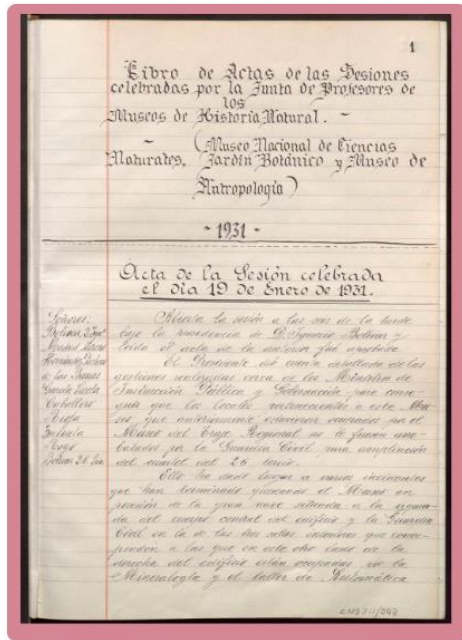 1
Libro de Actas de las Sesiones
celebradas por la Junta de Profesores de
los
Museos de Historia Natural. -
- (Museo Nacional de Ciencias
Naturales, Jardín Botánico y Museo de
Antropología)
- 1931 -
Acta de la Sesión celebrada
el día 19 de Enero de 1931.
Señores:
Abierta la sesión a las seis de la tarde
bajo la presidencia de D. Ignacio Bolívar y
leída el acta de la anterior fué aprobada.
El Presidente dió cuenta detallada de las
gestiones realizadas cerca de los Ministros de
Instrucción Pública y Gobernación para
que los locales pertenecientes a este
que anteriormente estuvieron ocupados por el
Museo del Traje Regional no le fueran
por la Guardia Civil, para ampliación
del cuartel del 26 tercio.
Ello ha dado lugar a varios incidentes
que han terminado quedando el Museo en
posesión de la gran nave situada a la
da del cuerpo central del edificio y la Guardia
Civil en la de las tres salas
a las que en este otro lado de la
derecha del edificio están ocupadas por la
Mineralogía y el taller de